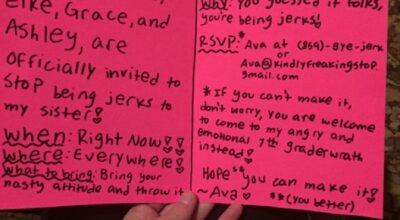 elke, Grace, and
Ashley, are
officially invited to
stop being jerks to
my sister!
When: Right Now!!
Where: Everywhere!
What to bring: Bring your
nasty attitude and throw it
Why: You guessed it folks,
you're being jerks!
RSVP:* Ava at (859)-Bye-jerk
or
Ava@kindlyfreakingstop.
gmail.com
*If you can't make it,
don't worry, you are welcome
to come to my angry and
emotional 7th graderwrath
instead!
Hope** you can make it!
~Ava **(You better)